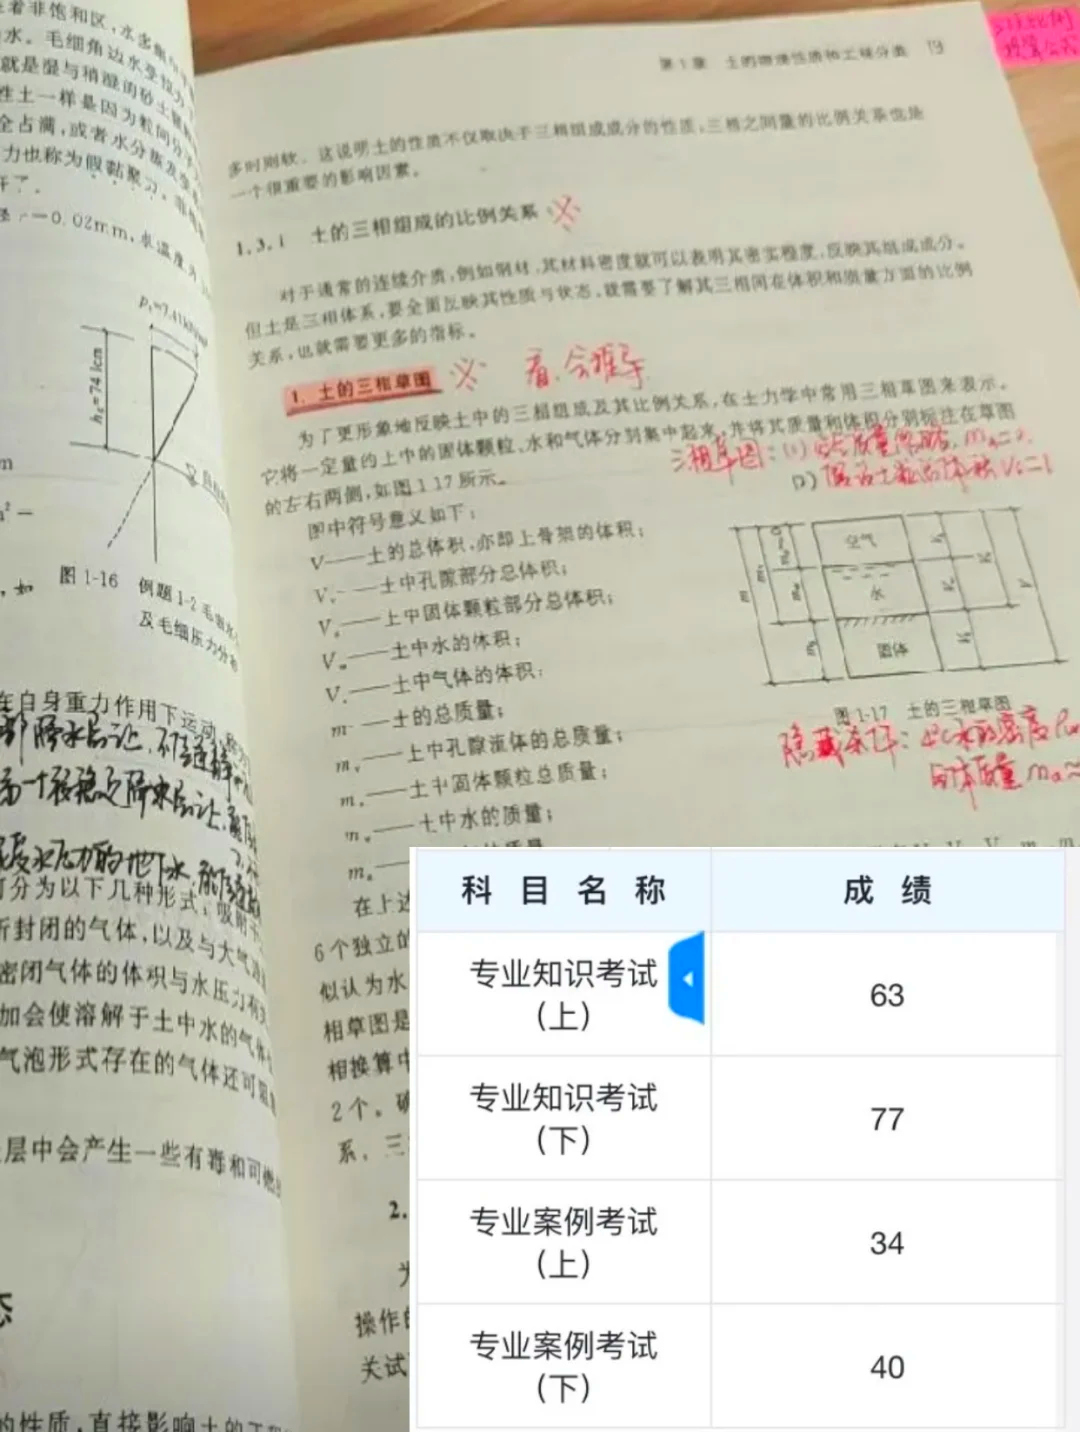 着非饱和区,水多集
水。毛细角边水受拉力
就是湿与稍湿的砂土颗
性土一样是因为粒间分子
全占满,或者水分蒸发变
力也称为假黏聚力。
开了。
r=0.02mm,求温度为
hc=74.1cm
图1-16 例题1-2毛细水
及毛细压力分布
在自身重力作用下运动
可分为以下几种形式:吸附于
所封闭的气体,以及与大气
密闭气体的体积与水压力有关
加会使溶解于土中水的气体
气泡形式存在的气体还可阻
层中会产生一些有毒和可燃
态
的性质,直接影响土的工程
第1章 土的物理性质和工程分类 19
多时则软。这说明土的性质不仅取决于三相组成成分的性质,三相之间量的比例关系也是
一个很重要的影响因素。
1.3.1 土的三相组成的比例关系
对于通常的连续介质,例如钢材,其材料密度就可以表明其密实程度,反映其组成成分。
但土是三相体系,要全面反映其性质与状态,就需要了解其三相间在体积和质量方面的比例
关系,也就需要更多的指标。
1. 土的三相草图
看,会推导
为了更形象地反映土中的三相组成及其比例关系,在土力学中常用三相草图来表示。
它将一定量的土中的固体颗粒、水和气体分别集中起来,并将其质量和体积分别标注在草图
的左右两侧,如图1-17所示。
三相草图:(1)空气质量忽略,ma=0.
(2)假设土粒的体积Vs=1
图中符号意义如下:
V——土的总体积,亦即土骨架的体积;
Vv——土中孔隙部分总体积;
Vs——土中固体颗粒部分总体积;
Vw——土中水的体积;
Va——土中气体的体积;
m——土的总质量;
mv——土中孔隙流体的总质量;
ms——土中固体颗粒总质量;
mw——土中水的质量;
空气
水
固体
图1-17 土的三相草图
隐藏条件:4℃水的密度ρw
气体质量ma≈
在上述
6个独立的
似认为水
相草图是
相换算中
2个。
系,三
2.
操作的
关试
科目名称 成绩
专业知识考试
(上) 63
专业知识考试
(下) 77
专业案例考试
(上) 34
专业案例考试
(下) 40